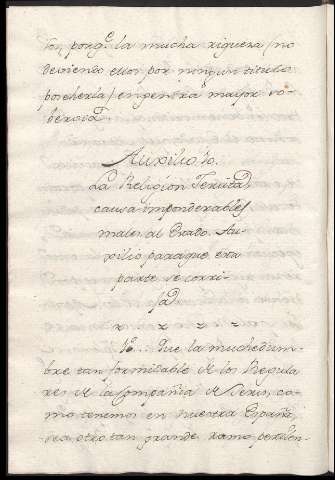 tos, porq.e la mucha riqueza (no
deviendo ellos por ningun titulo
poseherla) engendra mayor so-
bervia.
Auxilio 10.
La Religion Jesuita,
causa imponderables
males al Estado. Au-
xilio para que esta
parte se corri-
ja
10. Que la muchedum-
bre tan formidable de los Regula-
res de la Compañia de Jesus, co-
mo tenemos en nuestra España,
sea otro tan grande ramo